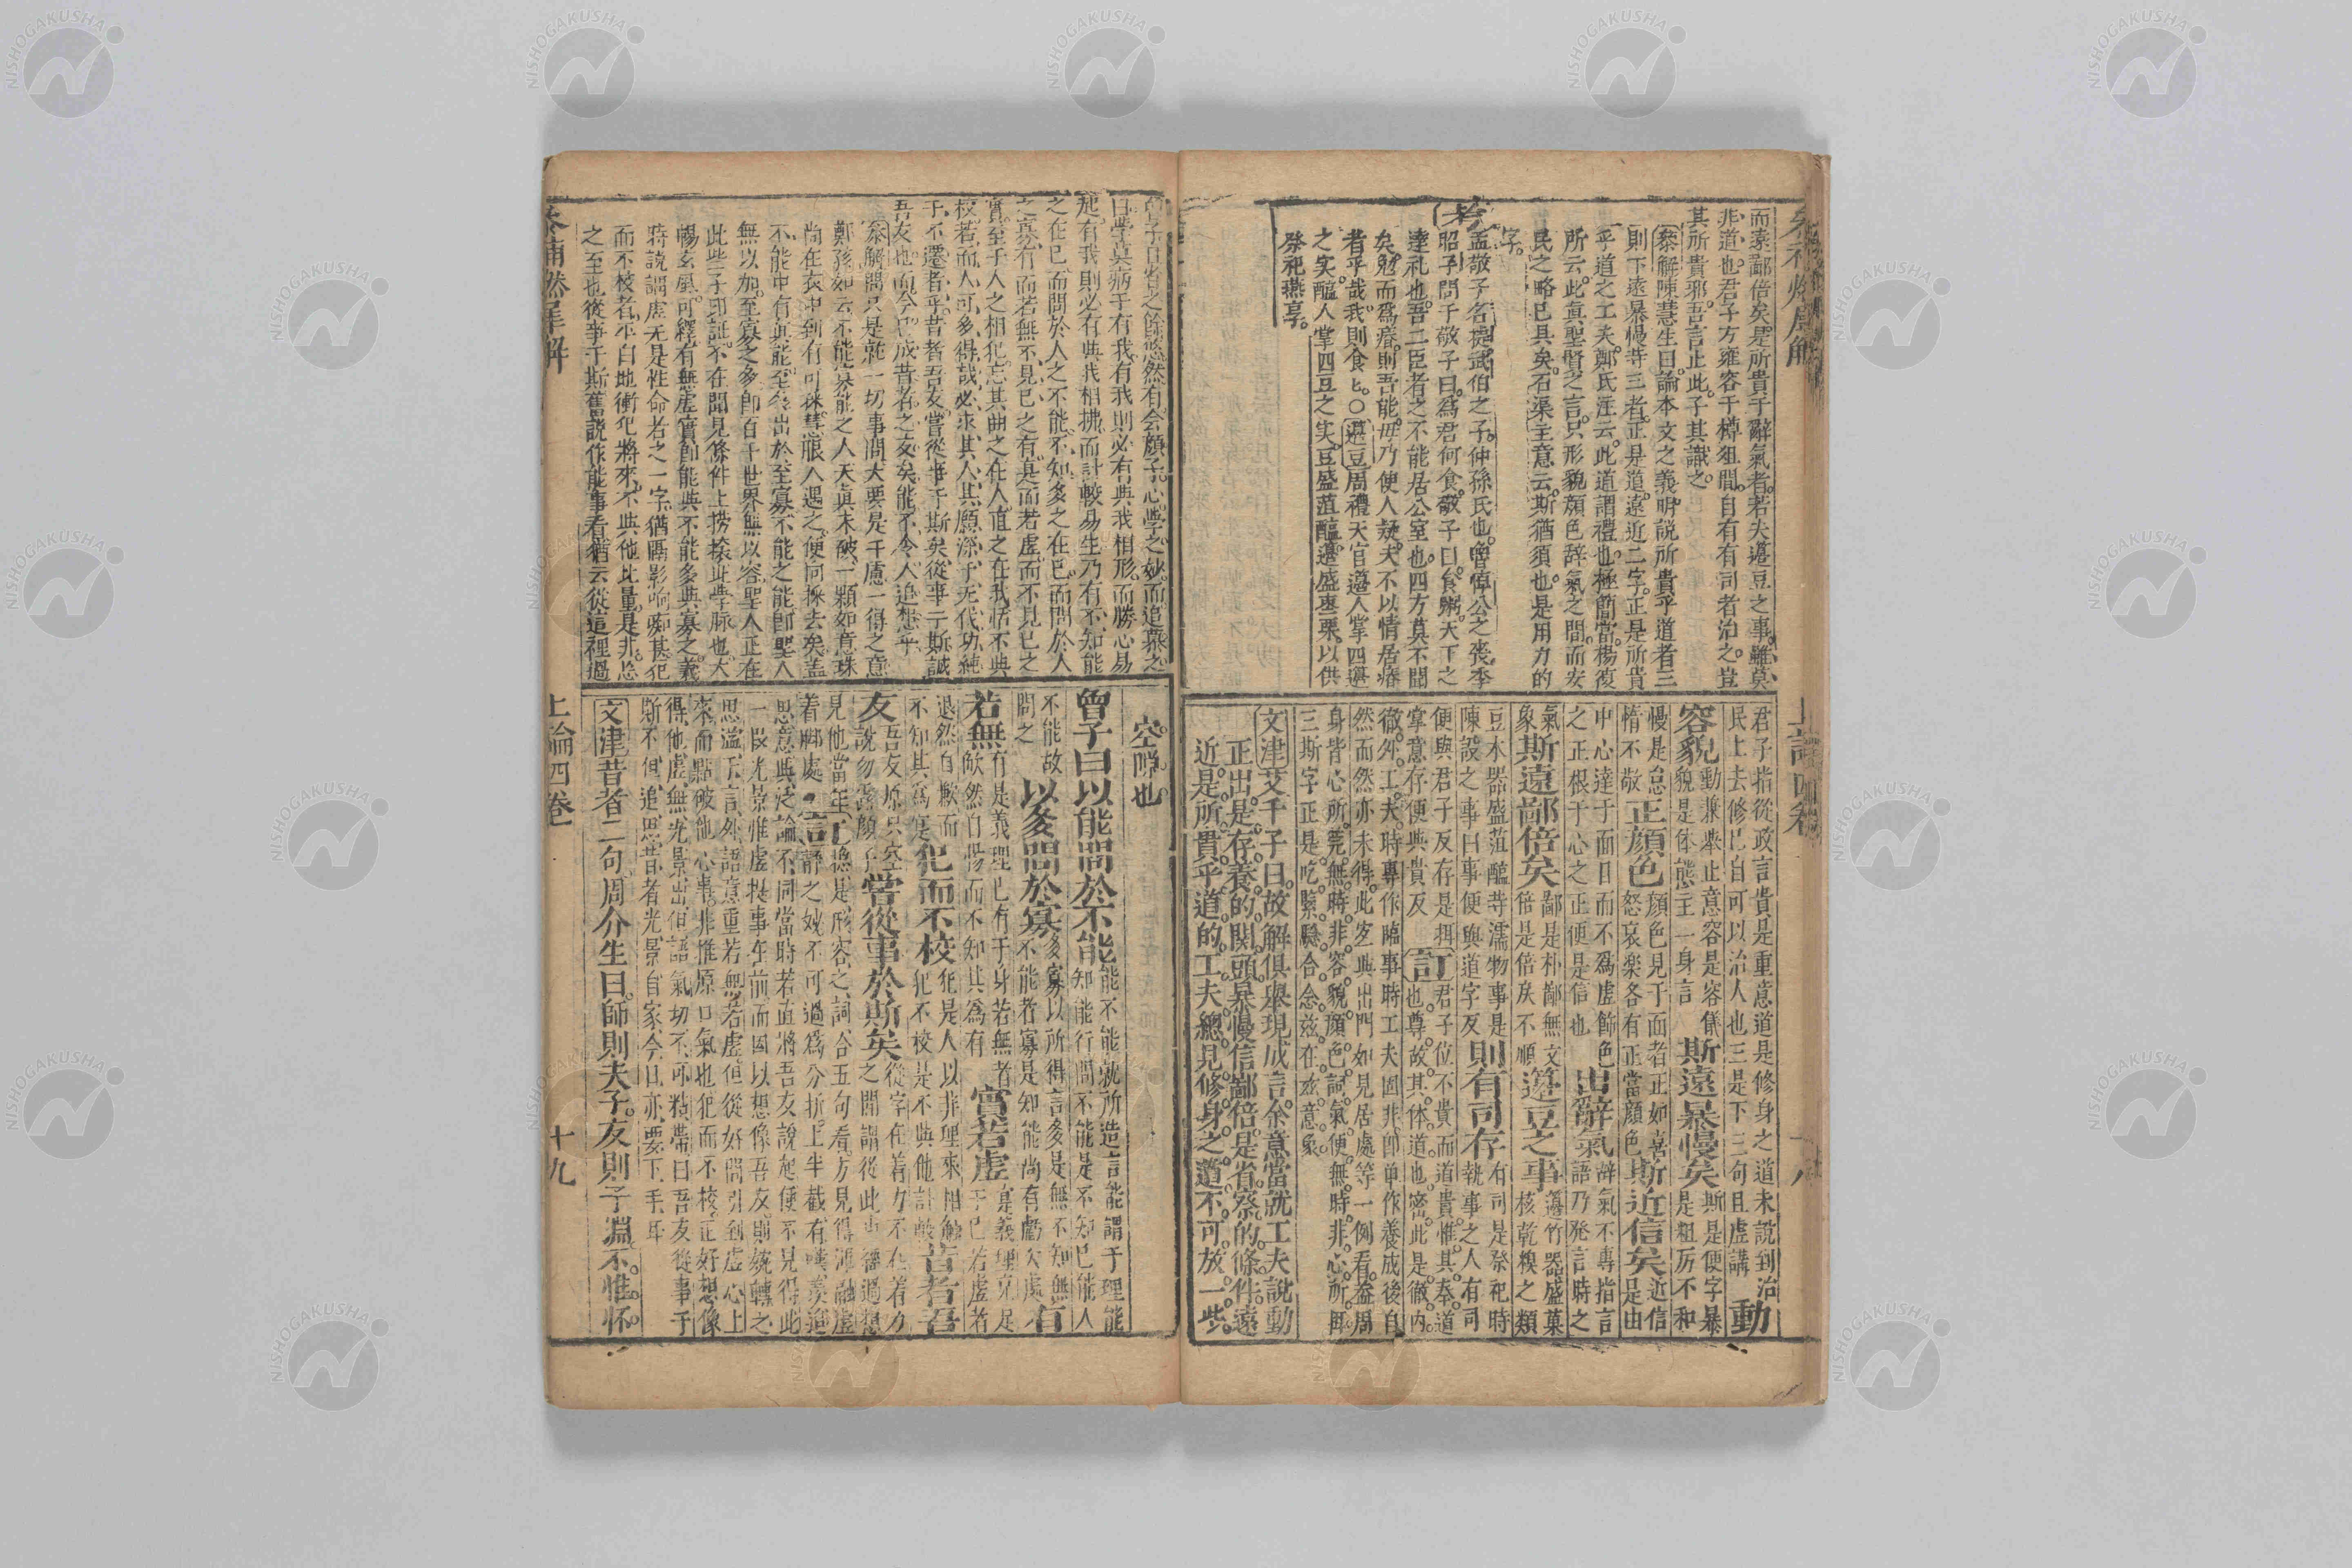 而遠鄙倍矣是所貴于辭氣者若夫籩豆之事雖莫
非道也君子方雍容于樽俎間自有有司者治之豈
其所貴邪吾言止此子其識之
叅解陳慧生曰論本文之義明說所貴乎道者三
則下遠暴慢等三者正是道遠近二字正是所貴
乎道之工夫鄭氏注云此道謂禮也極簡當楊復
所云此眞聖賢之言只形貌顏色辞氣之間而安
民之略已具矣石渠主意云斯猶須也是用力的
字
考
孟敬子名捷武伯之子仲孫氏也魯悼公之喪季
昭子問于敬子曰爲君何食敬子曰食粥天下之
達礼也吾三臣者之不能居公室也四方莫不聞
矣勉而爲瘠則吾能毋乃使人疑夫不以情居瘠
者乎哉我則食〻○籩豆周禮天官籩人掌四籩
之实醢人掌四豆之实豆盛菹醢籩盛棗栗以供
祭祀燕享
君子指從政言貴是重意道是修身之道未說到治
民上去修己自可以治人也三是下三句且虛講 動
容貌 貌是体態主一身言 動兼舉止意容是容儀 斯遠暴慢矣 斯是便字暴是粗厉不和
慢是怠惰不敬 正顏色 顏色見于面者正如喜怒哀楽各有正當顏色 斯近信矣 近信是由
中心達于面目而不爲虛飾色之正根于心之正便是信也 出辭氣 辞氣不專指言語乃発言時之
氣象 斯遠鄙倍矣 鄙是朴鄙無文倍是倍戾不順 籩豆之事 籩竹器盛菓核乾糗之類
豆木器盛菹醢等濡物事是陳設之事曰事便與道字反 則有司存 有司是祭祀時執事之人有司
便與君子反存是掌意存便與貴反 訂 君子位不貴而道貴惟其奉道也尊故其体道也密此是徹内
徹外工夫時專作臨事時工夫固非卽單作養成後自
然而然亦未得此宜與出門如見居處等一例看盖周
身皆心所莞無時非容貌顏色詞氣便無時非心所
三斯字正是吃緊驗合念兹在兹意象
文津艾千子曰故解俱舉現成言余意當就工夫說動
正出是存養的関頭暴慢信鄙倍是省察的條件遠
近是所貴乎道的工夫總見修身之道不可放一些
空隙也
曾子曰以能問於不能 能不能就所造言能謂于理能知能行問不能是不知己能人
不能故問之 以多問於寡 多寡以所得言多是無不知無不能者寡是知能尚有虧欠處 有
若無 有是義理已有于身若無者歉然自惕而不知其為有 實若虛
退然自歉而不知其爲實 犯而不校 犯是人以非理來相觸犯不校是不與他計較 昔者吾
友 吾友原只空說勿露顏子 嘗從事於斯矣 從字在着力不在着力之間
見他當年着脚處 訂 揔是形容之詞合五句看方見得渾融虛
靜之妙不可過爲分折上半截有嘆羡追
思意與泛論不同當時若直將吾友說起便不見得此
一段光景惟虛提事在前而因以想像吾友則婉轉之
思溢于言外語意重若無若虛但從好問引到虛心上
來而點破他心事非推原口氣也犯而不校正好想像
得他虛無光景出但語氣切不可粘帶曰吾友從事于
斯不但追思昔者光景自家今日亦要下手耳
文津昔者二句周介生曰師則夫子友則子淵不惟怀
日學莫病于有我有我則必有與我相形而勝心易
起有我則必有與我相拂而計較易生乃有不知能
之在己而問於人之不能不知多之在己而問於人
之寡有而若無不見己之有實而若虛而不見己之
實至于人之相犯忘其曲之在人直之在我恬不與
校若而人可多得哉必求其人其願深于无伐功純
于不遷者乎昔者吾友嘗從事于斯矣從事于斯誠
吾友也而今已成昔者之友矣能不令人追想乎
叅解問只是就一切事問大要是千慮一得之意
鄭孩如云不能與能之人天眞未破一顆如意珠
尚在衣中到有可採慧眼人遇之便向採去矣盖
不能中有真能至多出於至寡不能之能卽聖人
無以加至寡之多卽百千世界無以容聖人正在
此些子印証不在聞見條件上撈摸此學脉也大
暢玄風可繹有無虛實卽能與不能多與寡之義
時說謂虛无是性命者之一字猶隔影响與甚犯
而不校者平白地衝犯將來不與他比量是非忘
之至也從事于斯舊說作能事看猶云從這裡過
上論四卷
十九